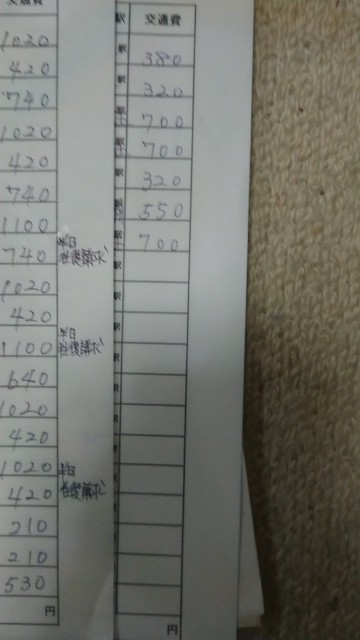 交通費
1020
420
740
1020
420
740
1100
740
半日
往復請求
1020
420
1100
半日
往復請求
640
1020
420
1020
半日
往復請求
420
210
210
530
円
駅 交通費
駅 380
駅 320
駅 700
駅 700
駅 320
駅 550
駅 700
駅
駅
駅
駅
駅
駅
駅
円